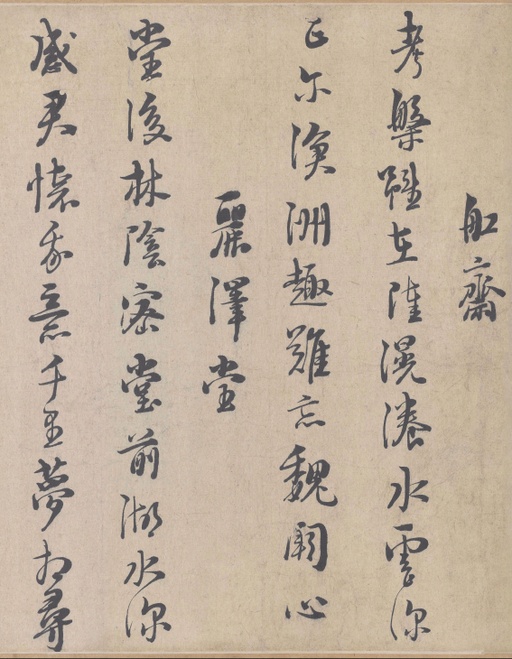 舡齋
考槃雖在陸滉瀁水雲深
正尔滄洲趣難忘魏闕心
麗澤堂
堂後林陰密堂前湖水深
感君懷我意千里夢相尋